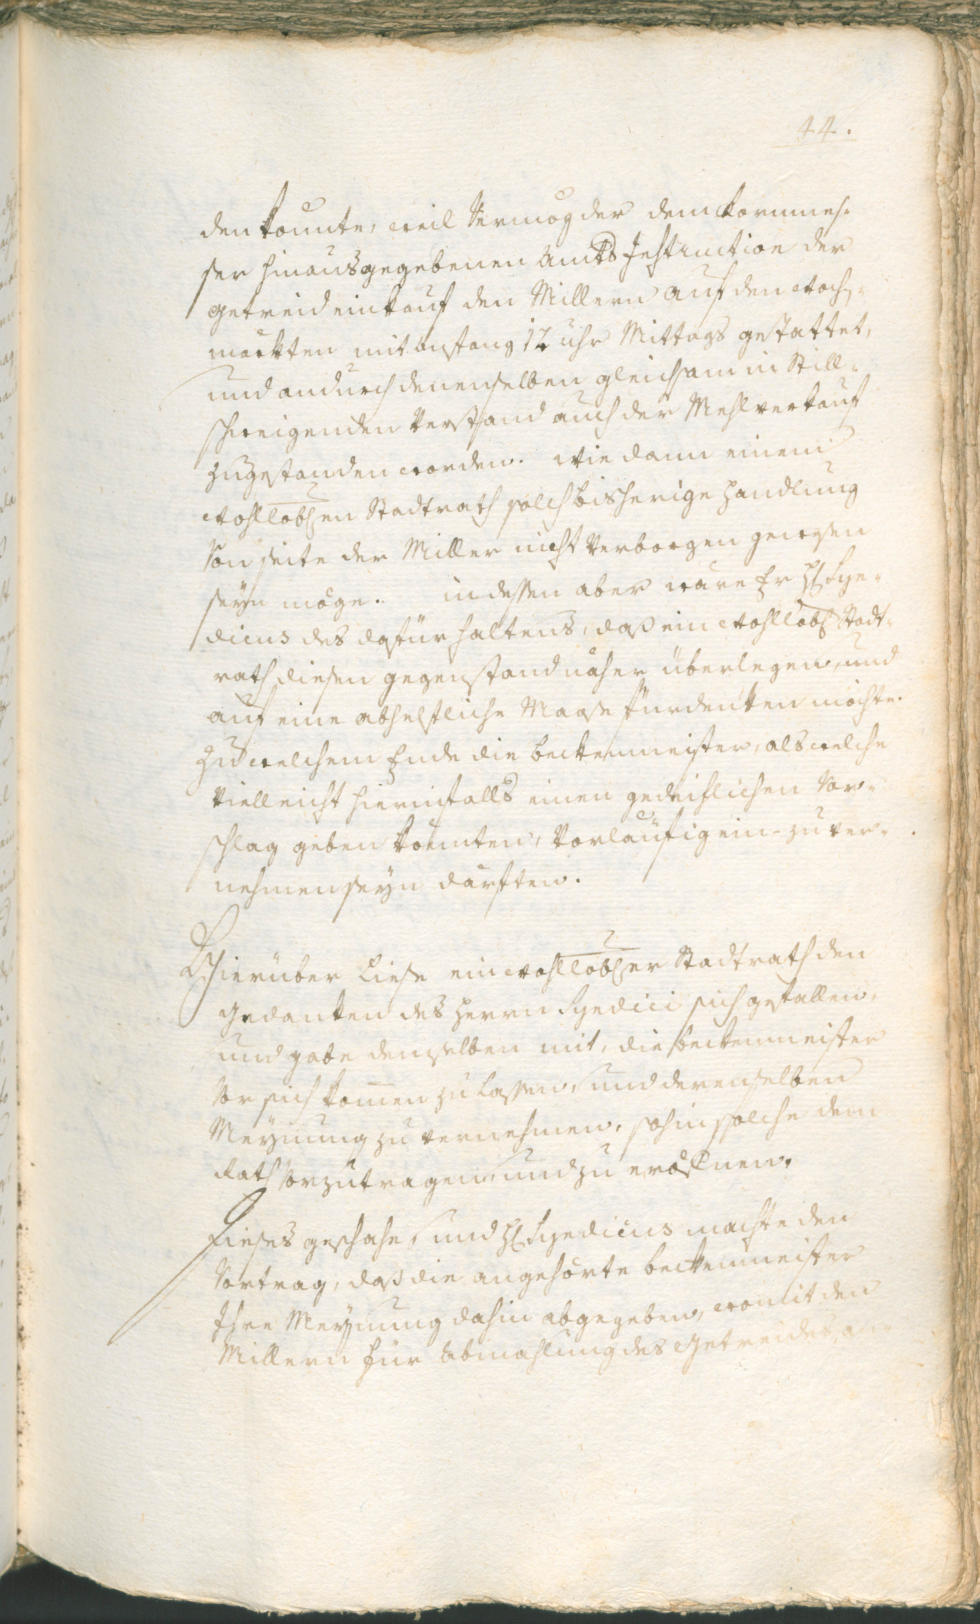 44.
den konnte, weil Vermög der dem Kornmes-
ser hinausgegebenen Amts Instruction der
getreid einkauf den Millern auf den Woch-
märkten mit anfang 12 uhr Mittags gestattet,
und andurch denenselben gleichsam in Still-
schweigenden Verstand auch der Mehl verkauf
zugestanden worden. Wie dann einem
Wohllobl en Stadtrath solch bisherige Handlung
Von seite der Miller nicht Verborgen gewesen
seyn möge. indessen aber wäre Er H. Syn-
dicus des dafürhaltens, daß ein Wohllobl Stadt-
rath diesen gegenstand näher überlegen, und
auf eine abhelfliche Maase fürdenken möchte.
Zu welchem Ende die beckenmeister, als welche
vielleicht hierinfalls einen gedeihlichen Vor-
schlag geben könnten, Vorläufig ein- zu ver-
nehmen seyn därften.
Hierüber Liese ein Wohllobler Stadtrath den
Gedanken des Herrn Syndici sich gefallen,
und gabe demselben mit, die beckenmeister
Vor sich komen zu Lassen, und derenselben
Meynung zu vernehmen, sohin solche dem
Rath Vorzutragen und zu eröfnen.
Dieses geschahe, und H. Syndicus machte den
Vortrag, daß die angehörte beckenmeister
Ihre Meynung dahin abgegeben, womit den
Millern für Abmahlung des Getreides,